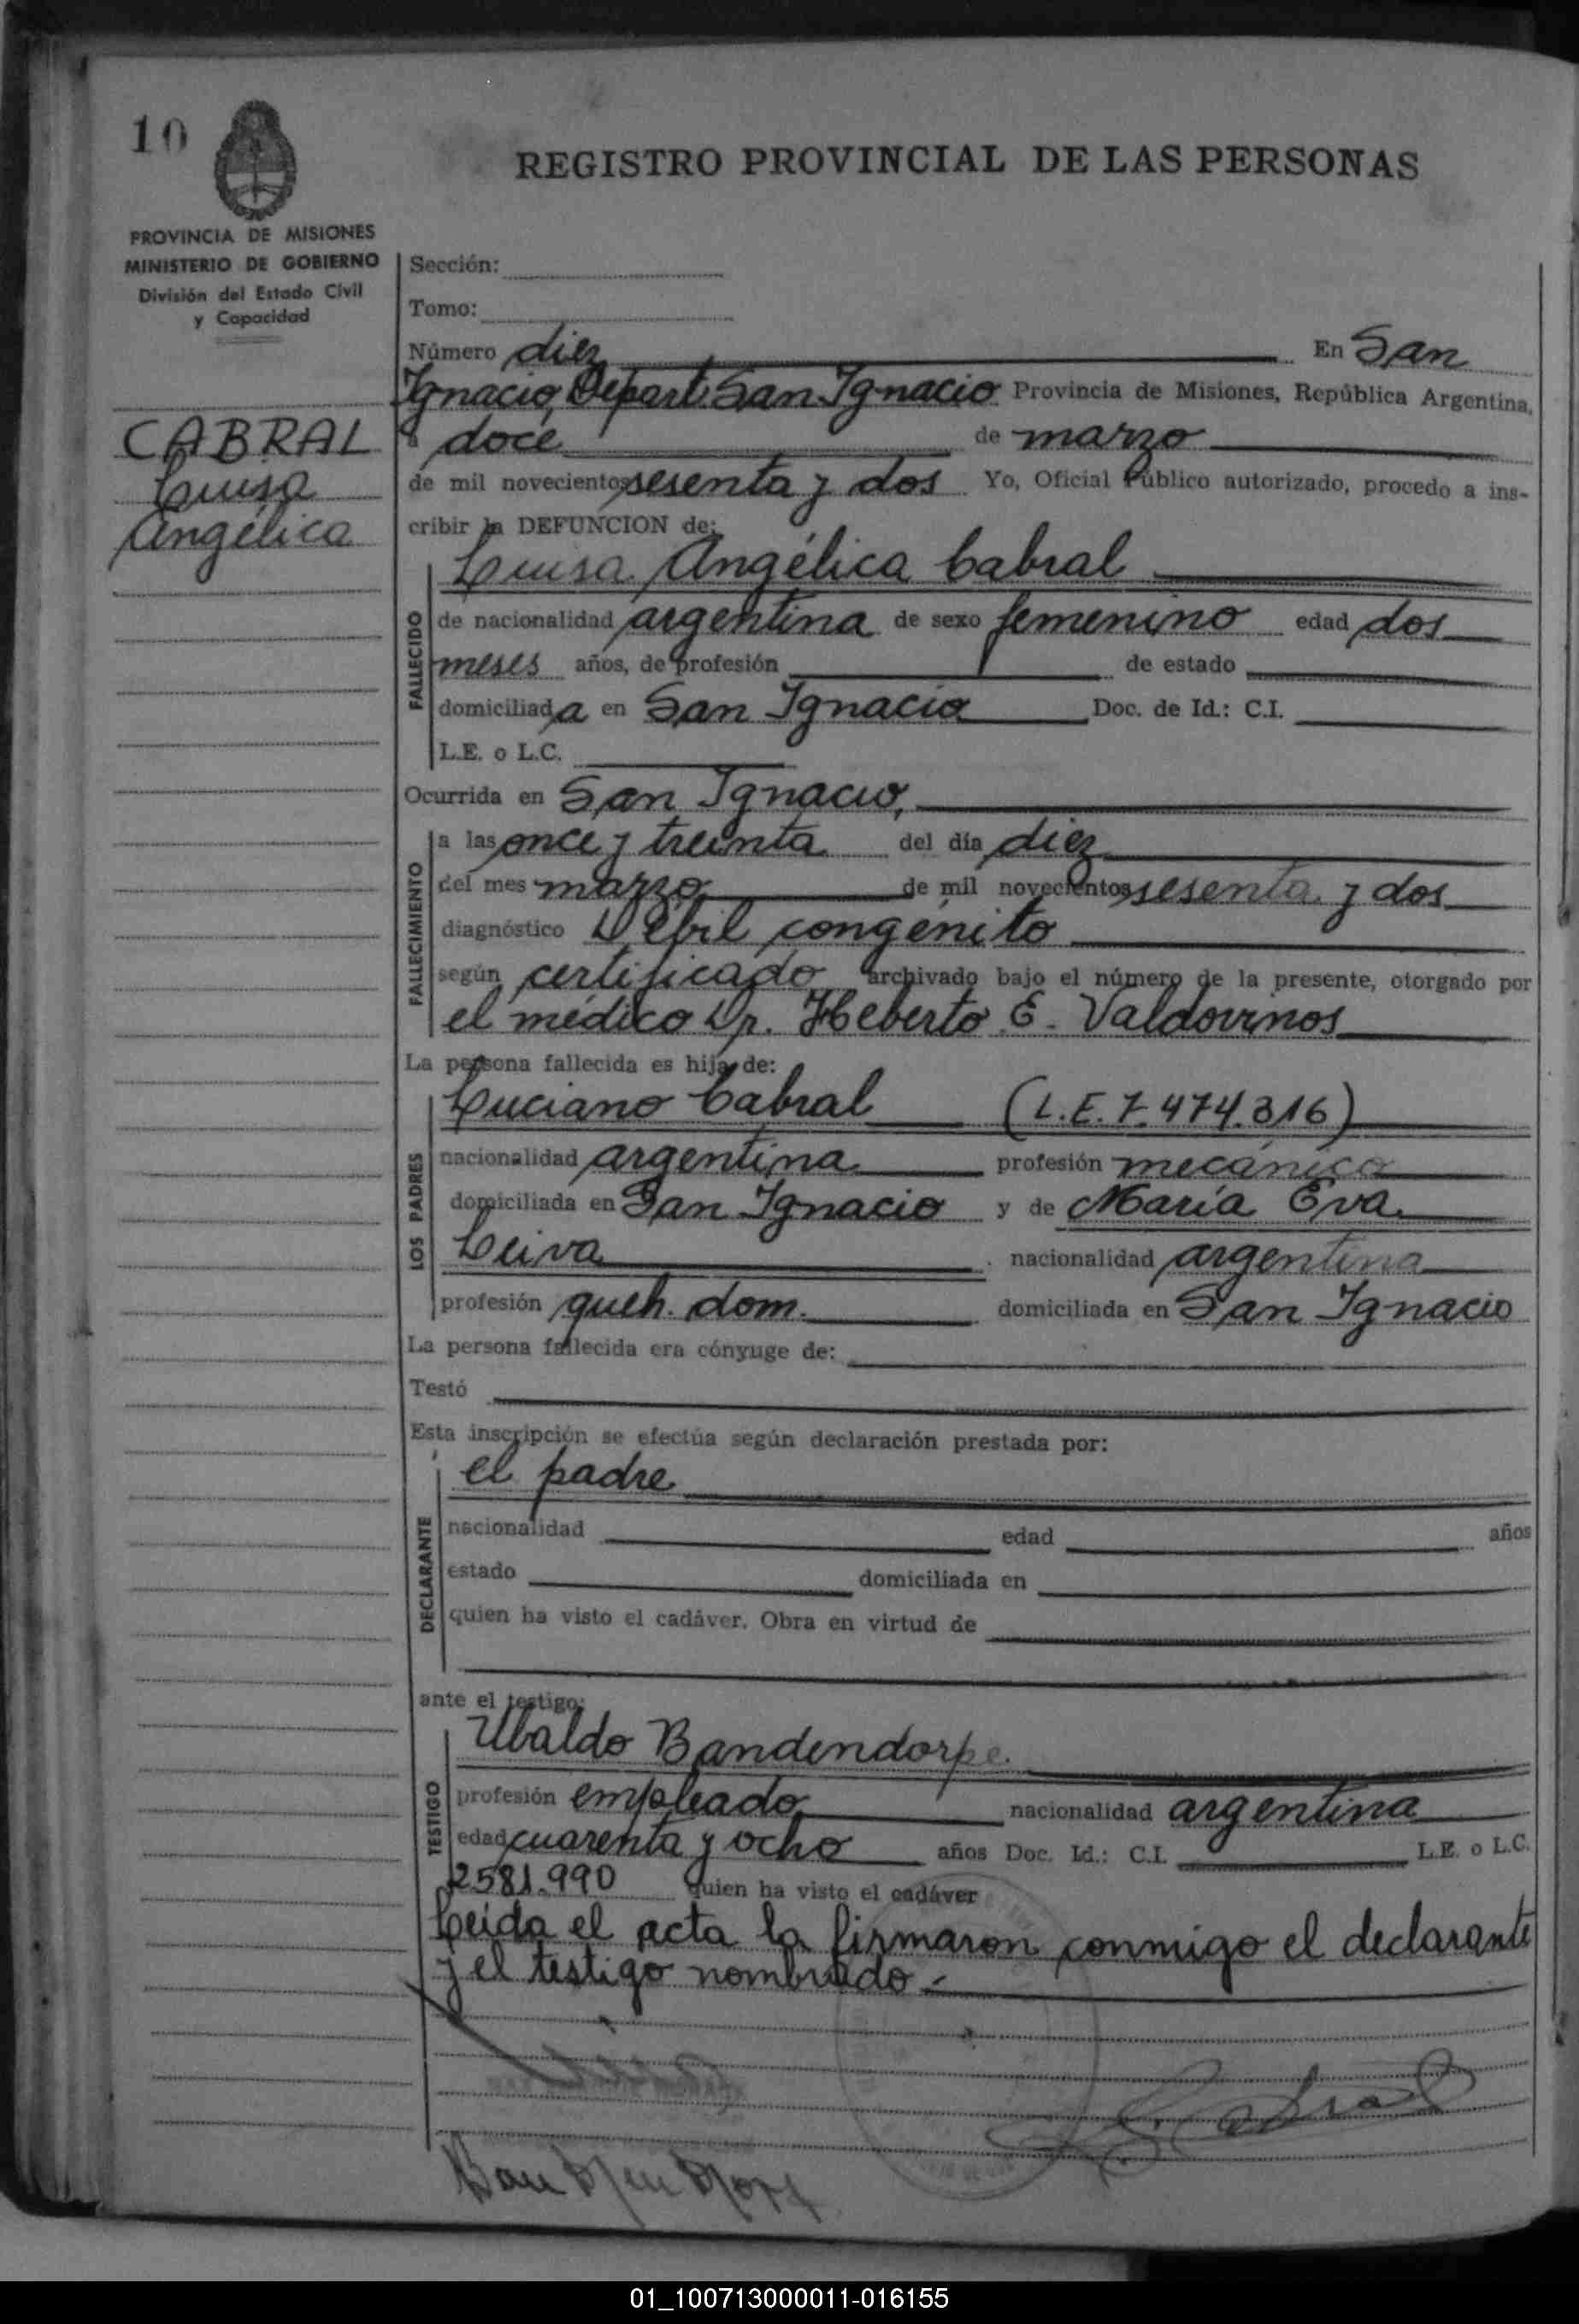 10
REGISTRO PROVINCIAL DE LAS PERSONAS
PROVINCIA DE MISIONES
MINISTERIO DE GOBIERNO
División del Estado Civil
y Capacidad
CABRAL
Luisa
Angélica
Sección:
Tomo:
Número diez En San
Ignacio, Depart. San Ignacio Provincia de Misiones, República Argentina,
a doce de marzo
de mil novecientos sesenta y dos Yo, Oficial Público autorizado, procedo a ins-
cribir la DEFUNCION de:
FALLECIDO
Luisa Angélica Cabral
de nacionalidad argentina de sexo femenino edad dos
meses años, de profesión de estado
domiciliada en San Ignacio Doc. de Id.: C.I.
L.E. o L.C.
Ocurrida en San Ignacio,
FALLECIMIENTO
a las once y treinta del día diez
del mes marzo de mil novecientos sesenta y dos
diagnóstico Débil congénito
según certificado archivado bajo el número de la presente, otorgado por
el médico Dr. Heberto E. Valdovinos
La persona fallecida es hija de:
LOS PADRES
Luciano Cabral (L.E. 7.474.316)
nacionalidad argentina profesión mecánico
domiciliada en San Ignacio y de María Eva
Leiva nacionalidad argentina
profesión queh. dom. domiciliada en San Ignacio
La persona fallecida era cónyuge de:
Testó
Esta inscripción se efectúa según declaración prestada por:
DECLARANTE
el padre
nacionalidad edad años
estado domiciliada en
quien ha visto el cadáver. Obra en virtud de
ante el testigo:
TESTIGO
Ubaldo Bandendorpe
profesión empleado nacionalidad argentina
edad cuarenta y ocho años Doc. Id.: C.I. L.E. o L.C.
2581.990 quien ha visto el cadáver
Leida el acta la firmaron conmigo el declarante
y el testigo nombrado.-
L. Cabral
01_100713000011-016155